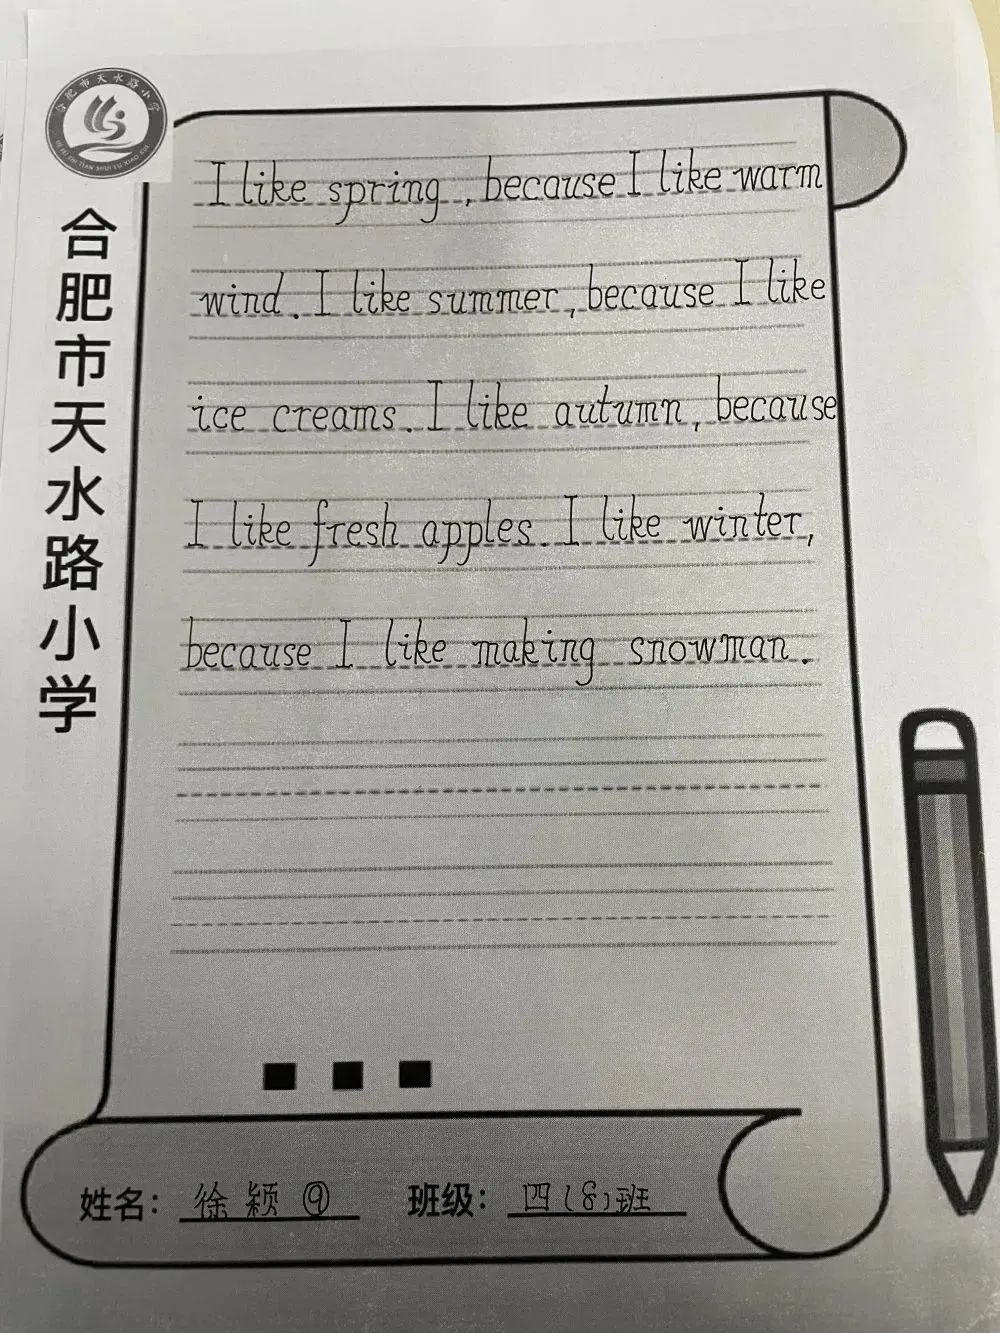 合肥市天水路小学
HE FEI SHI TIAN SHUI LU XIAO XUE
合肥市天水路小学
I like spring, because I like warm
wind. I like summer, because I like
ice creams. I like autumn, because
I like fresh apples. I like winter,
because I like making snowman.
姓名： 徐颖 ⑨ 班级： 四（8）班